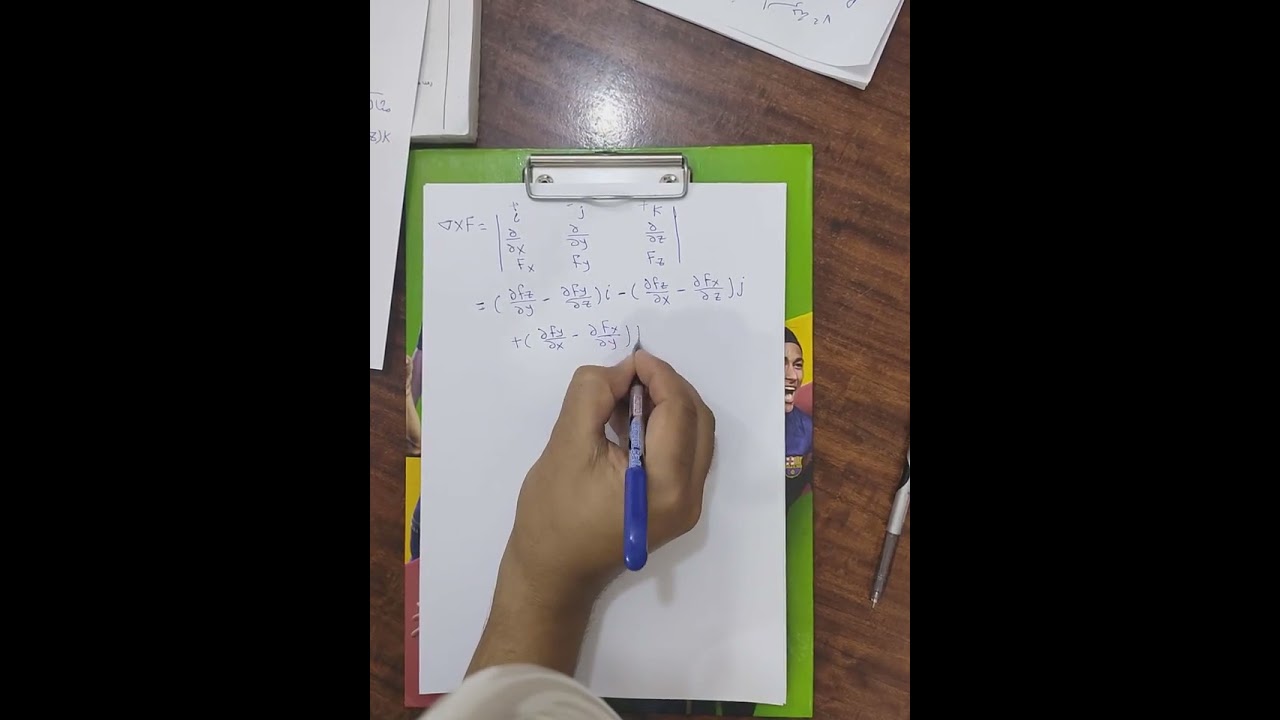 v z
)(2
z)k
+ - +
∇×F = | i j k |
| ∂/∂x ∂/∂y ∂/∂z |
| Fx Fy Fz |
= (∂fz/∂y − ∂Fy/∂z)i − (∂fz/∂x − ∂Fx/∂z)j
+(∂fy/∂x − ∂Fx/∂y)